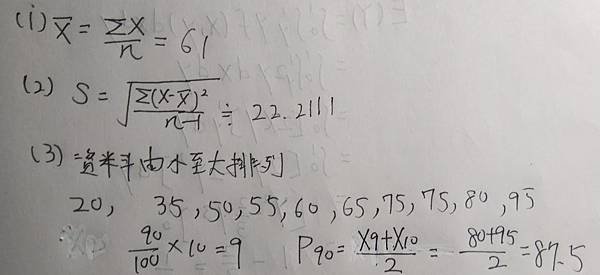 (1) X̄ = ΣX/n = 61
(2) S = √(Σ(X-X̄)²/(n-1)) ≑ 22.2111
(3) 資料由小至大排列
20, 35, 50, 55, 60, 65, 75, 75, 80, 95
90/100 × 10 = 9 P90 = (X9+X10)/2 = (80+95)/2 = 87.5